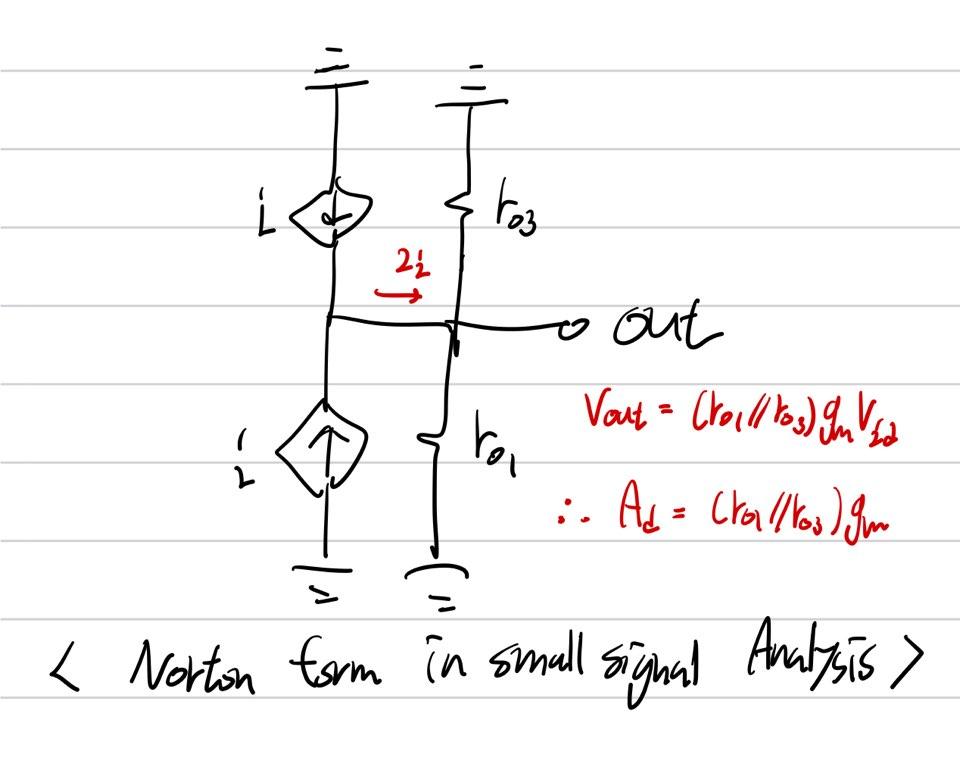 i
r₀₃
2i
out
i
r₀₁
Vout = (r₀₁//r₀₃)gₘVid
∴ Ad = (r₀₁//r₀₃)gₘ
< Norton form in small signal Analysis >